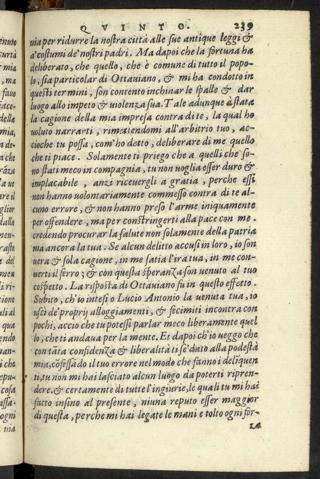 QVINTO. 239
nia per ridurre la nostra città alle sue antique leggi &
a' costumi de' nostri padri. Ma dapoi che la fortuna ha
deliberato, che quello, che è comune di tutto il popo-
lo, sia particolar di Ottauiano, & mi ha condotto in
questi termini, son contento inchinar le spalle & dar
luogo allo impeto & uiolenza sua. Tale adunque è stata
la cagione della mia impresa contra di te, la qual ho
uoluto narrarti, rimettendomi all'arbitrio tuo, ac-
cioche tu possa, com'ho detto, deliberare di me quello
che ti piace. Solamente ti priego che a quelli che so-
no stati meco in compagnia, tu non uoglia esser duro &
implacabile, anzi riceuergli a gratia, perche essi
non hanno uolontariamente commesso contra di te al-
cuno errore, & non hanno preso l'arme iniquamente
per offendere, ma per constringerti alla pace con me.
credendo procurar la salute non solamente della patria
ma ancora la tua. Se alcun delitto accusi in loro, io son
uera & sola cagione, in me satia l'ira tua, in me con-
uerti il ferro; & con questa speranza son uenuto al tuo
cospetto. La risposta di Ottauiano fu in questo effetto.
Subito, ch'io intesi o Lucio Antonio la uenuta tua, io
usci de' proprij alloggiamenti, & fecimiti incontra con
pochi, accio che tu potessi parlar meco liberamente quel
lo, che ti andaua per la mente. Et dapoi ch'io ueggo che
con tāta confidenza & liberalità ti se' dato alla podestà
mia, cōfessādo il tuo errore nel modo che fanno i deliquen
ti, tu non mi hai lasciato alcun luogo da poterti ripren-
dere. & certamente di tutte l'ingiurie, le quali tu mi hai
fatto insino al presente, niuna reputo esser maggior
di questa, perche mi hai legate le mani e tolto ogni for-